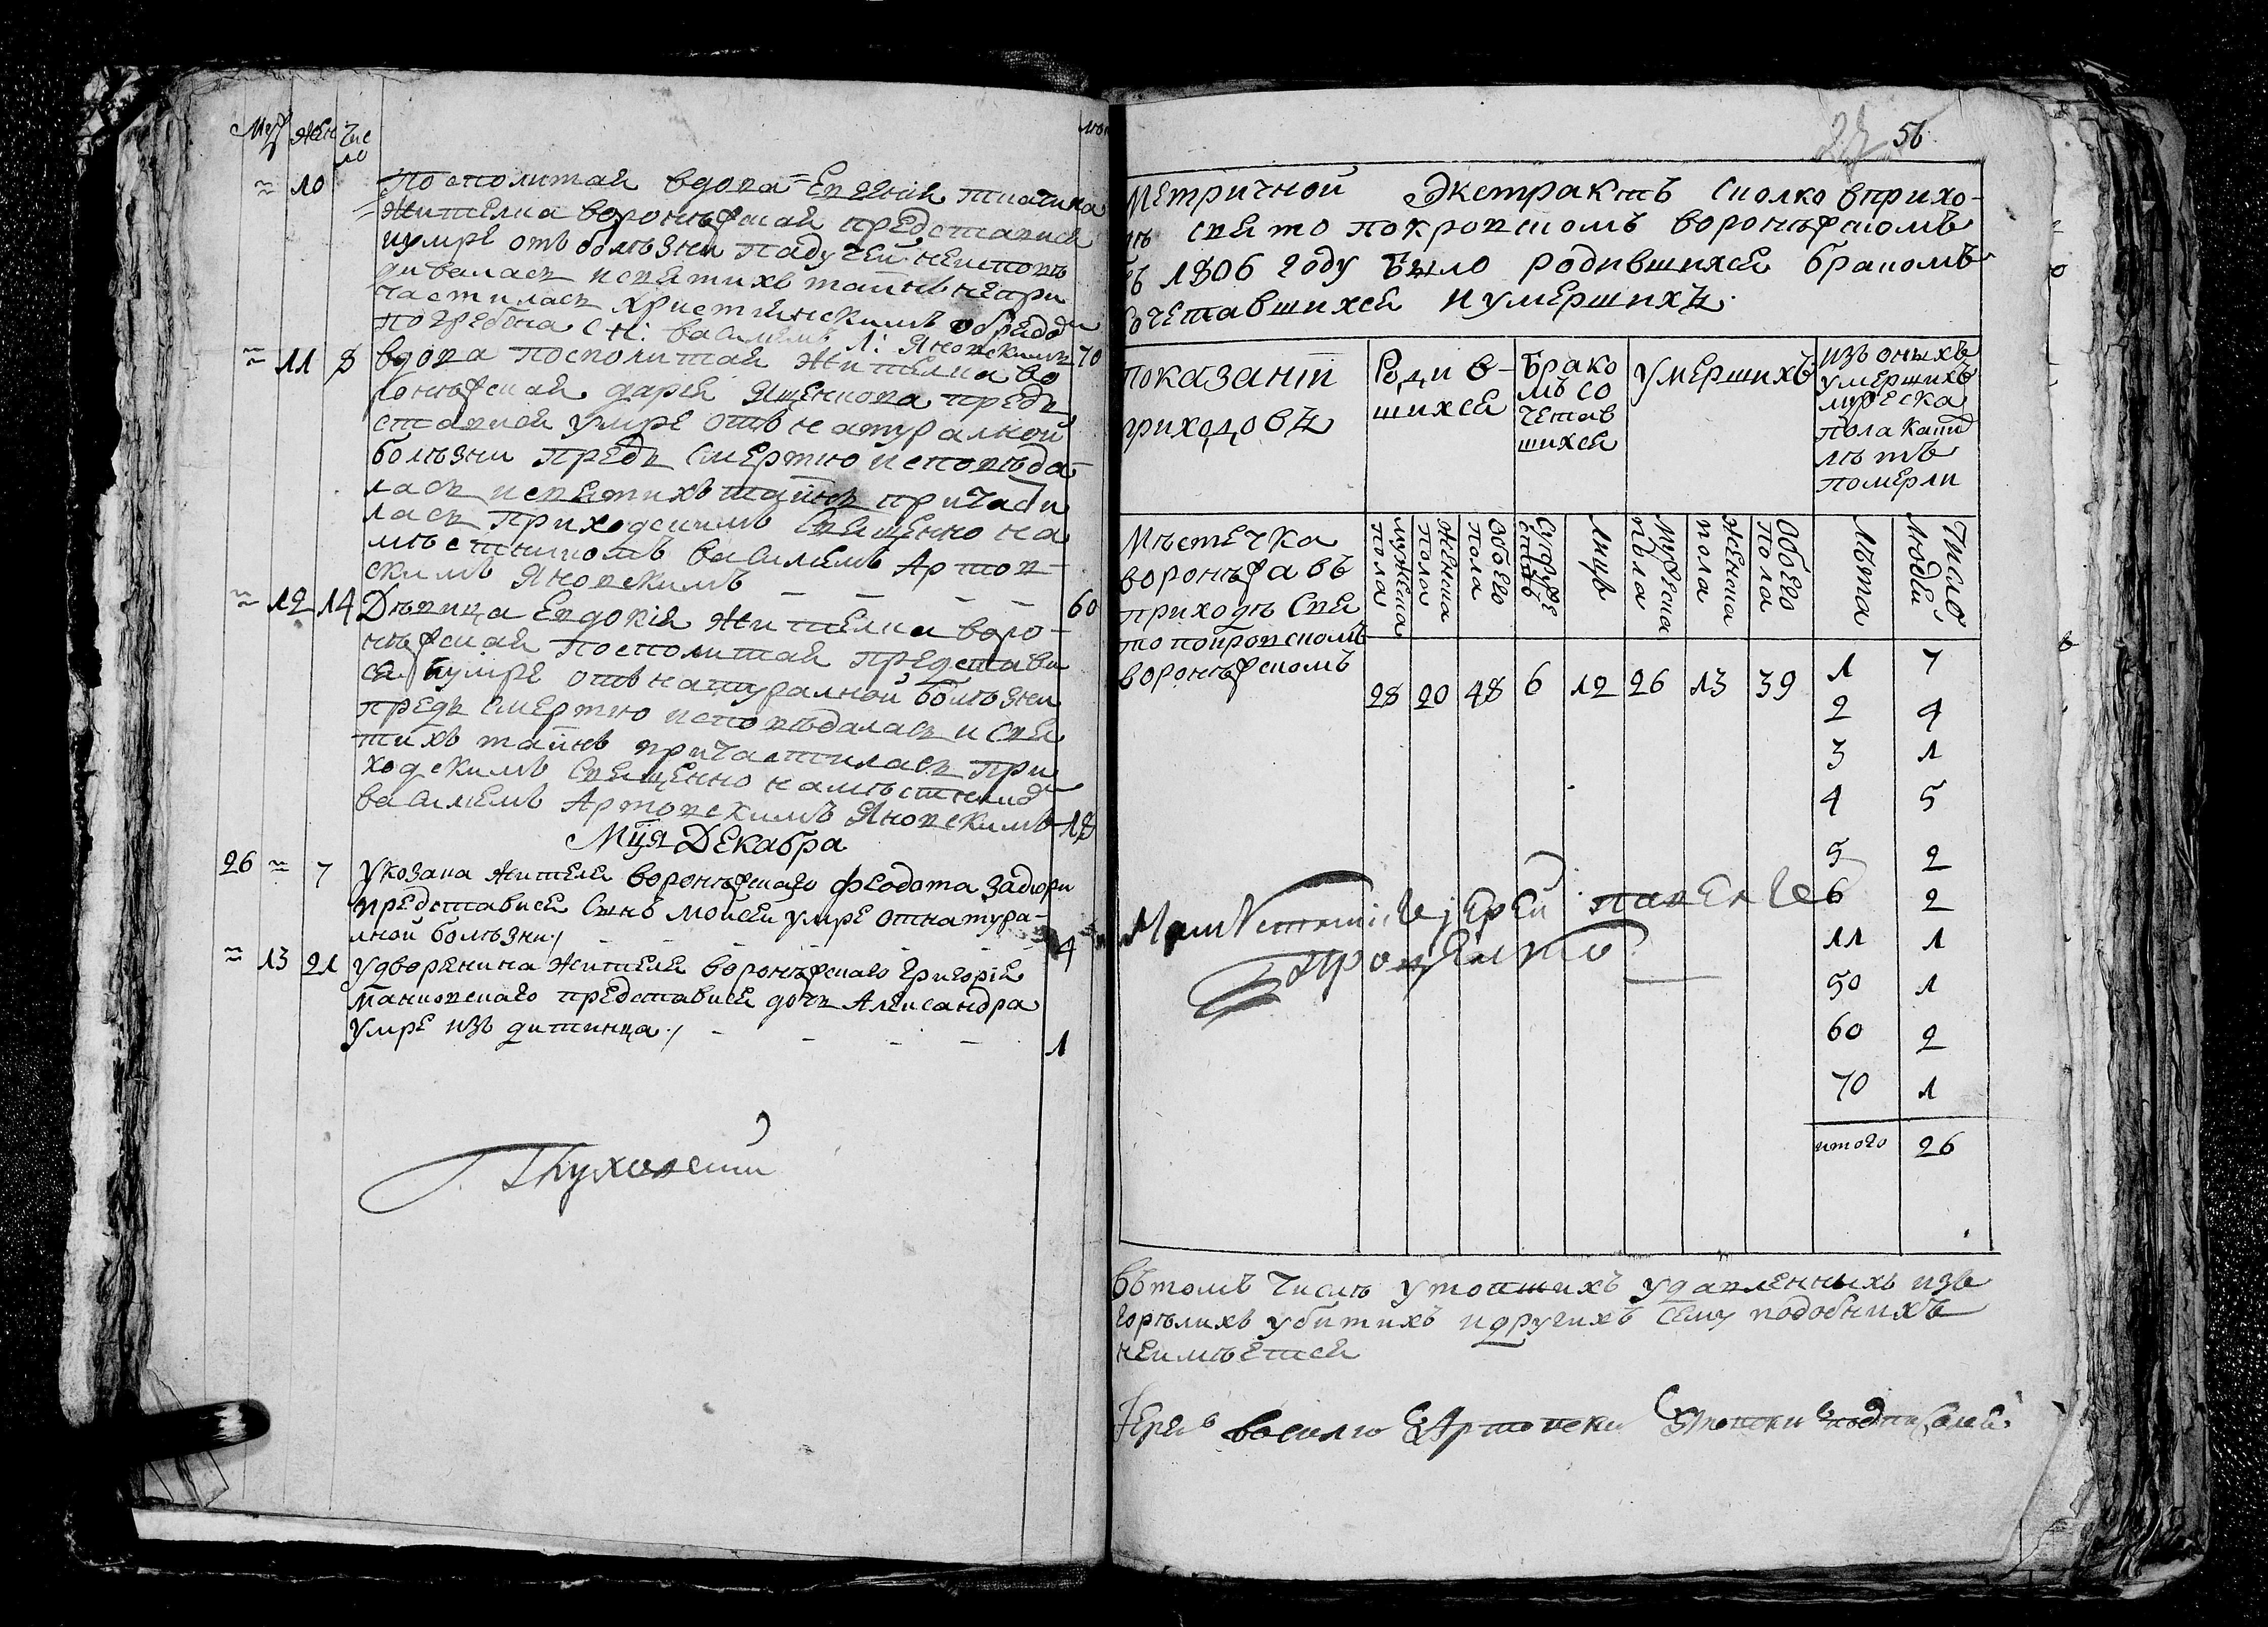 Муж Жен Чис
ло
10 Посполитая вдова Евгенія
жителка воронѣжская представися
и умре отъ болѣзни падучей неисповѣ
давалась исвятихъ таинъ непри
частилась християнскимъ обрядо
погребена С Н: василіемъ А: Яновскимъ
11 8 вдова посполитая жителка во 70
ронѣжская дарія Ященкова предъ
ставися умре отъ натуралной
болѣзни предъ смертю исповѣда
лась исвятихъ таинъ причасти
лась приходскимъ Священно на
мѣстникомъ василіемъ Артов
скимъ Яновскимъ
12 14 Дѣвица Евдокія жителка воро 60
нѣжская посполитая представи
ся умре отъ натуралной болѣзни
предъ смертю исповѣдалась и свя
тихъ таинъ причастилась при
ходскимъ Священно намѣстнико
василіемъ Артовскимъ Яновскимъ 18
Мця Декабра
26 7 Указака жителя воронѣжскаго Феодота
представися Синъ Моисей умре отнатура
лной болѣзни 4
13 21 Удворянина жителя воронѣжскаго Григорія
Манковскаго представися дочь Александра
умре изъ дитинца 1
56
Метричной Экстрактъ сколко вприхо-
свято покровскомъ воронѣжскомъ
1806 году было родившихся бракомъ
сочетавшихся иумершихъ.
показаніи Родив- Брако Умершихъ изъ оныхъ
приходовъ шихся мъ со умершихъ
четав мужеска
шихся пола каких
лѣтъ
померли
Мѣстечка мужеска пола женска пола обоего пола Супруже лицъ мужеска пола женска пола обоего пола Лѣта Число людей
воронѣжа въ
приходѣ Свя
то покровскомъ
воронѣжскомъ
28 20 48 6 12 26 13 39 1 7
2 4
3 1
4 5
5 2
6 2
11 1
50 1
60 2
70 1
итого 26
іерей
вътомъ числѣ утопшихъ удавленныхъ изъ
горѣлихъ убитихъ идругихъ сему подобнихъ
неимѣется
Іерей василіи Артовски Яновски подписалъ